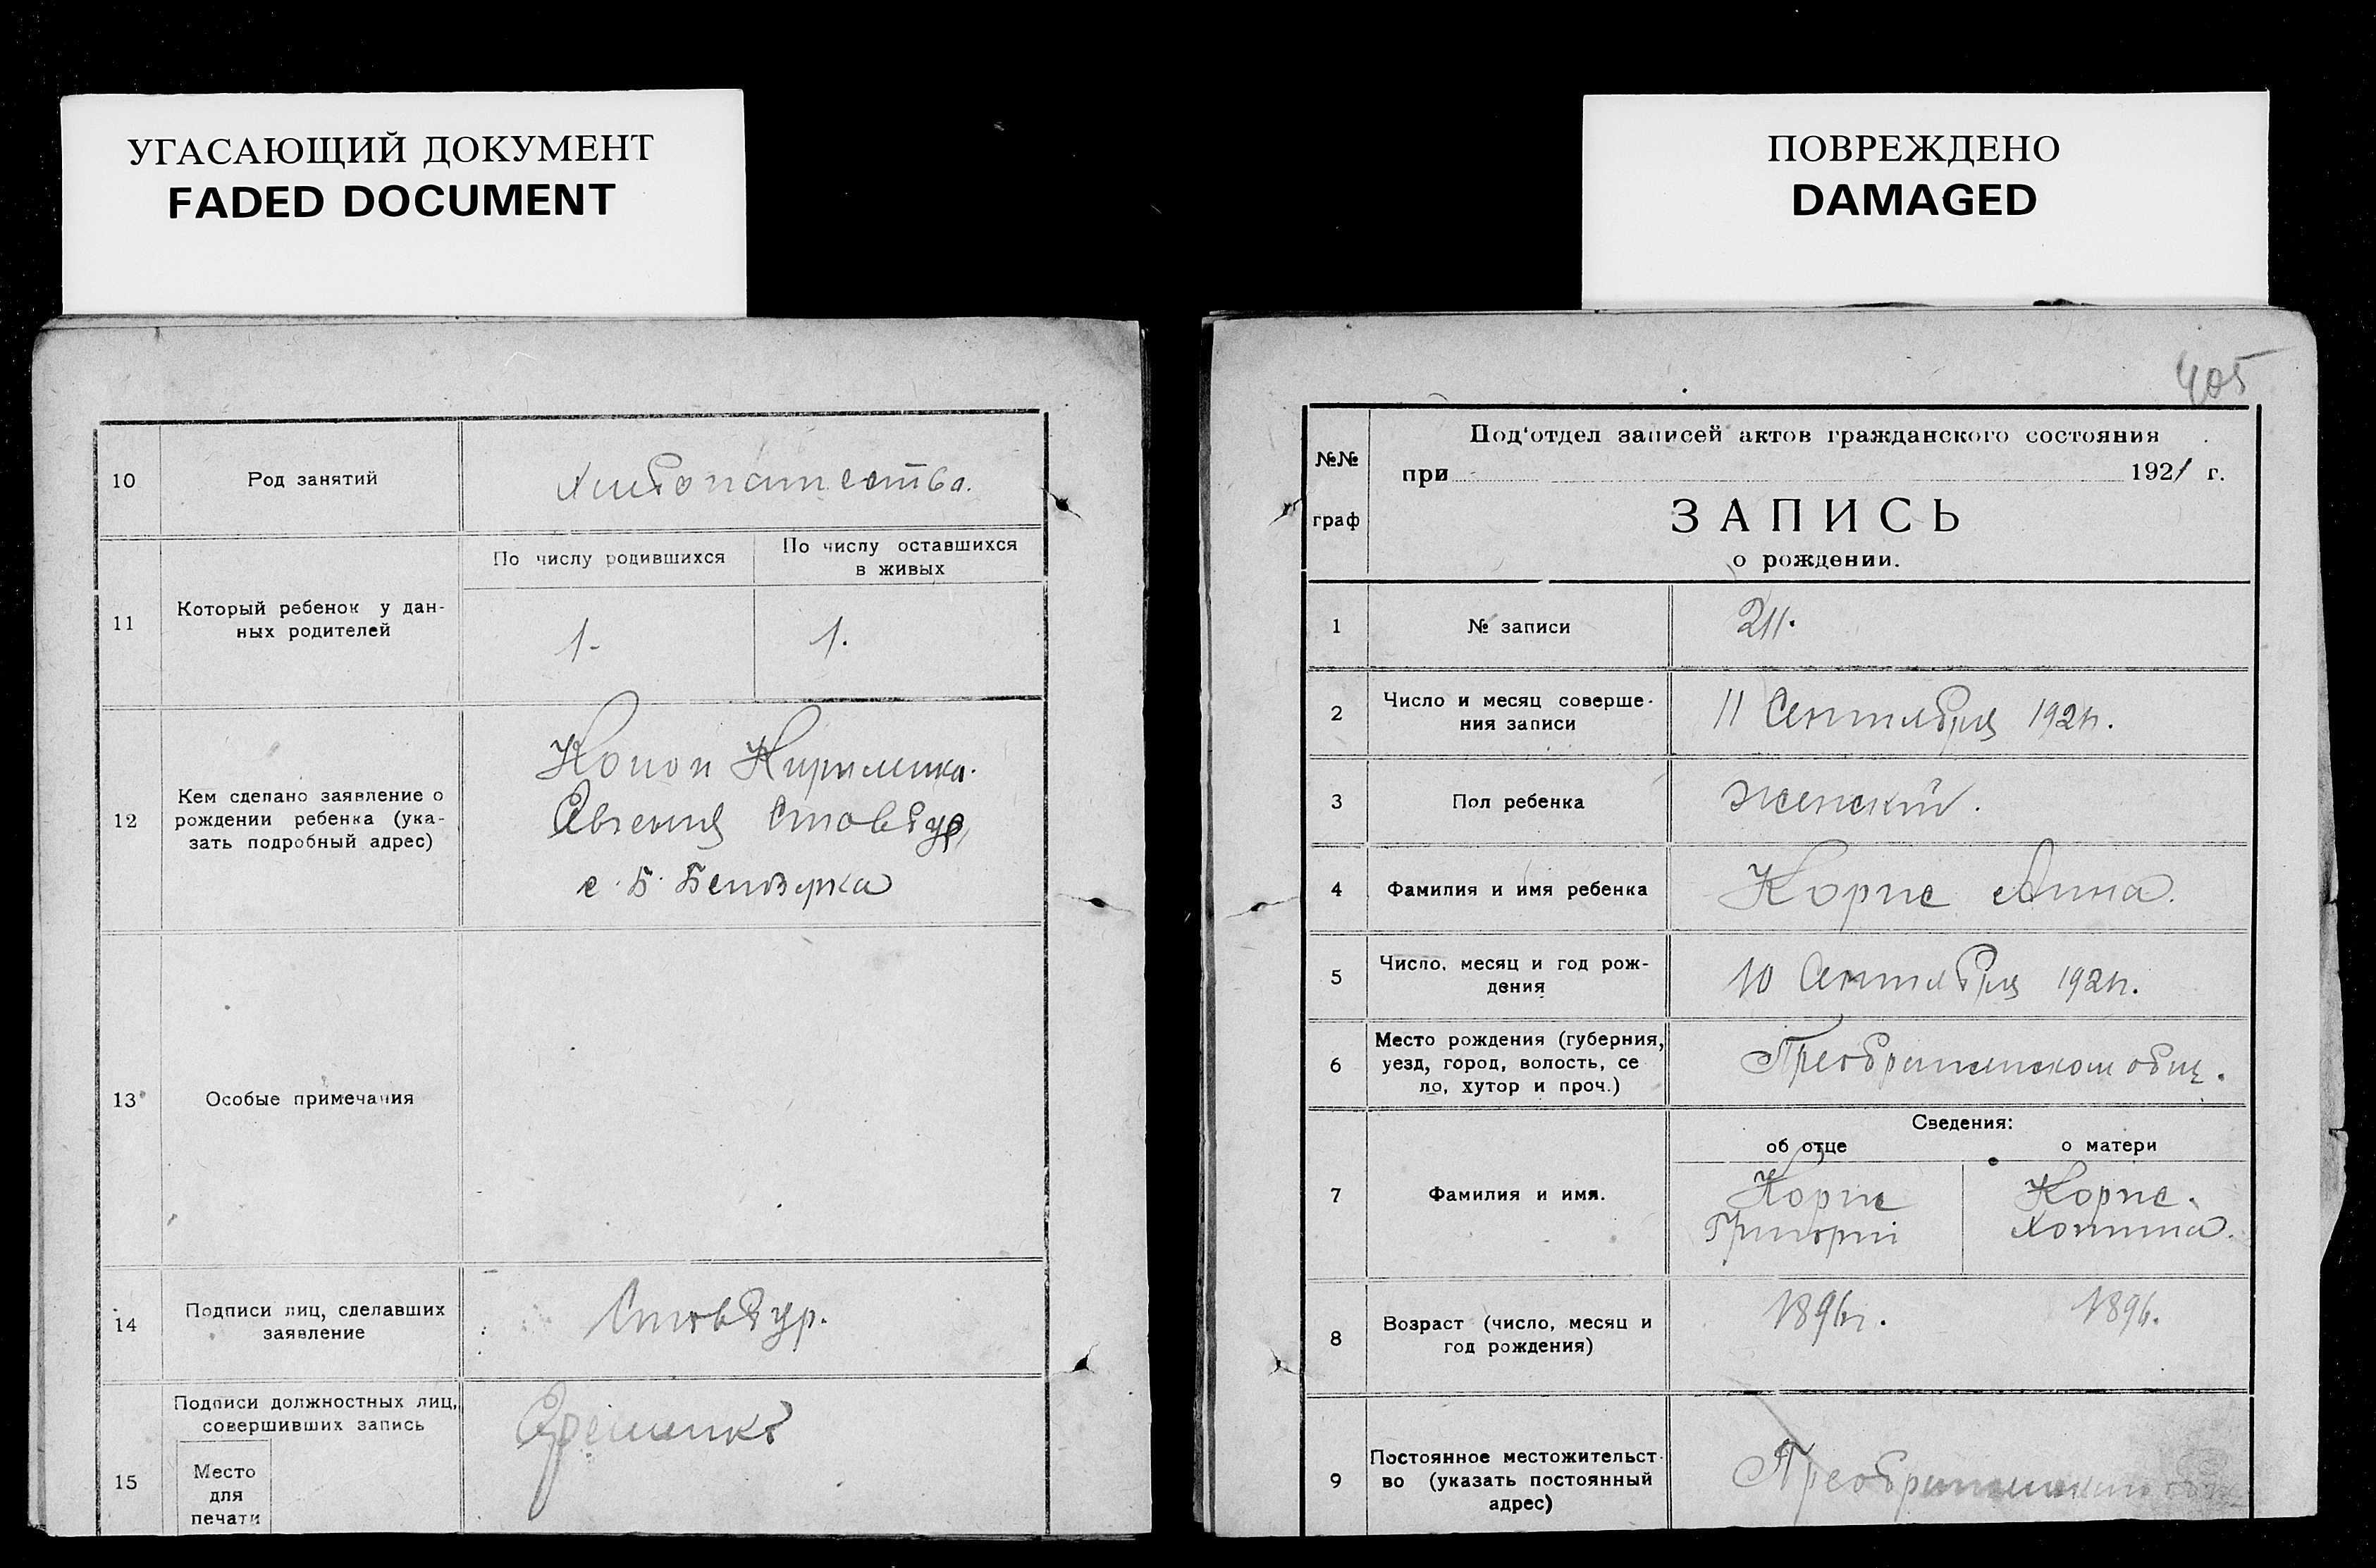 УГАСАЮЩИЙ ДОКУМЕНТ
FADED DOCUMENT
ПОВРЕЖДЕНО
DAMAGED
10
Род занятий
11
Который ребенок у дан-
ных родителей
По числу родившихся
По числу оставшихся
в живых
1.
1.
12
Кем сделано заявление о
рождении ребенка (ука-
зать подробный адрес)
Стовбур
с. Б. Белозерка
13
Особые примечания
14
Подписи лиц, сделавших
заявление
Стовбур.
15
Подписи должностных лиц,
совершивших запись
Место
для
печати
405
№№
граф
Под'отдел записей актов гражданского состояния
при 1921 г.
ЗАПИСЬ
о рождении.
1
№ записи
211.
2
Число и месяц соверше-
ния записи
11 Сентября 1921г.
3
Пол ребенка
Женский.
4
Фамилия и имя ребенка
Корпс Анна.
5
Число, месяц и год рож-
дения
10 Сентября 1921г.
6
Место рождения (губерния,
уезд, город, волость, се
ло, хутор и проч.)
общ.
Сведения:
об отце
о матери
7
Фамилия и имя.
Корпс
Григорій
Корпс.
8
Возраст (число, месяц и
год рождения)
1896г.
1896.
9
Постоянное местожительст-
во (указать постоянный
адрес)